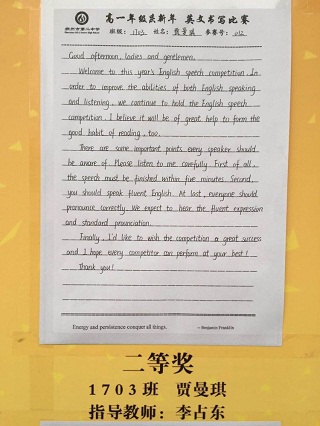 高一年级庆新年 英文书写比赛
班级: 1703 姓名: 贾曼琪 参赛号: 012
Good afternoon, ladies and gentlemen.
Welcome to this year's English speech competition. In
order to improve the abilities of both English speaking
and listening, we continue to hold the English speech
competition. I believe it will be of great help to form the
good habit of reading, too.
There are some important points every speaker should
be aware of. Please listen to me carefully. First of all,
the speech must be finished within five minutes. Second,
you should speak fluent English. At last, everyone should
pronounce correctly. We expect to hear the fluent expression
and standard pronunciation.
Finally, I'd like to wish the competition a great success
and I hope every competitor can perform at your best!
Thank you!
Energy and persistence conquer all things. -- Benjamin Franklin
二等奖
1703班 贾曼琪
指导教师: 李占东